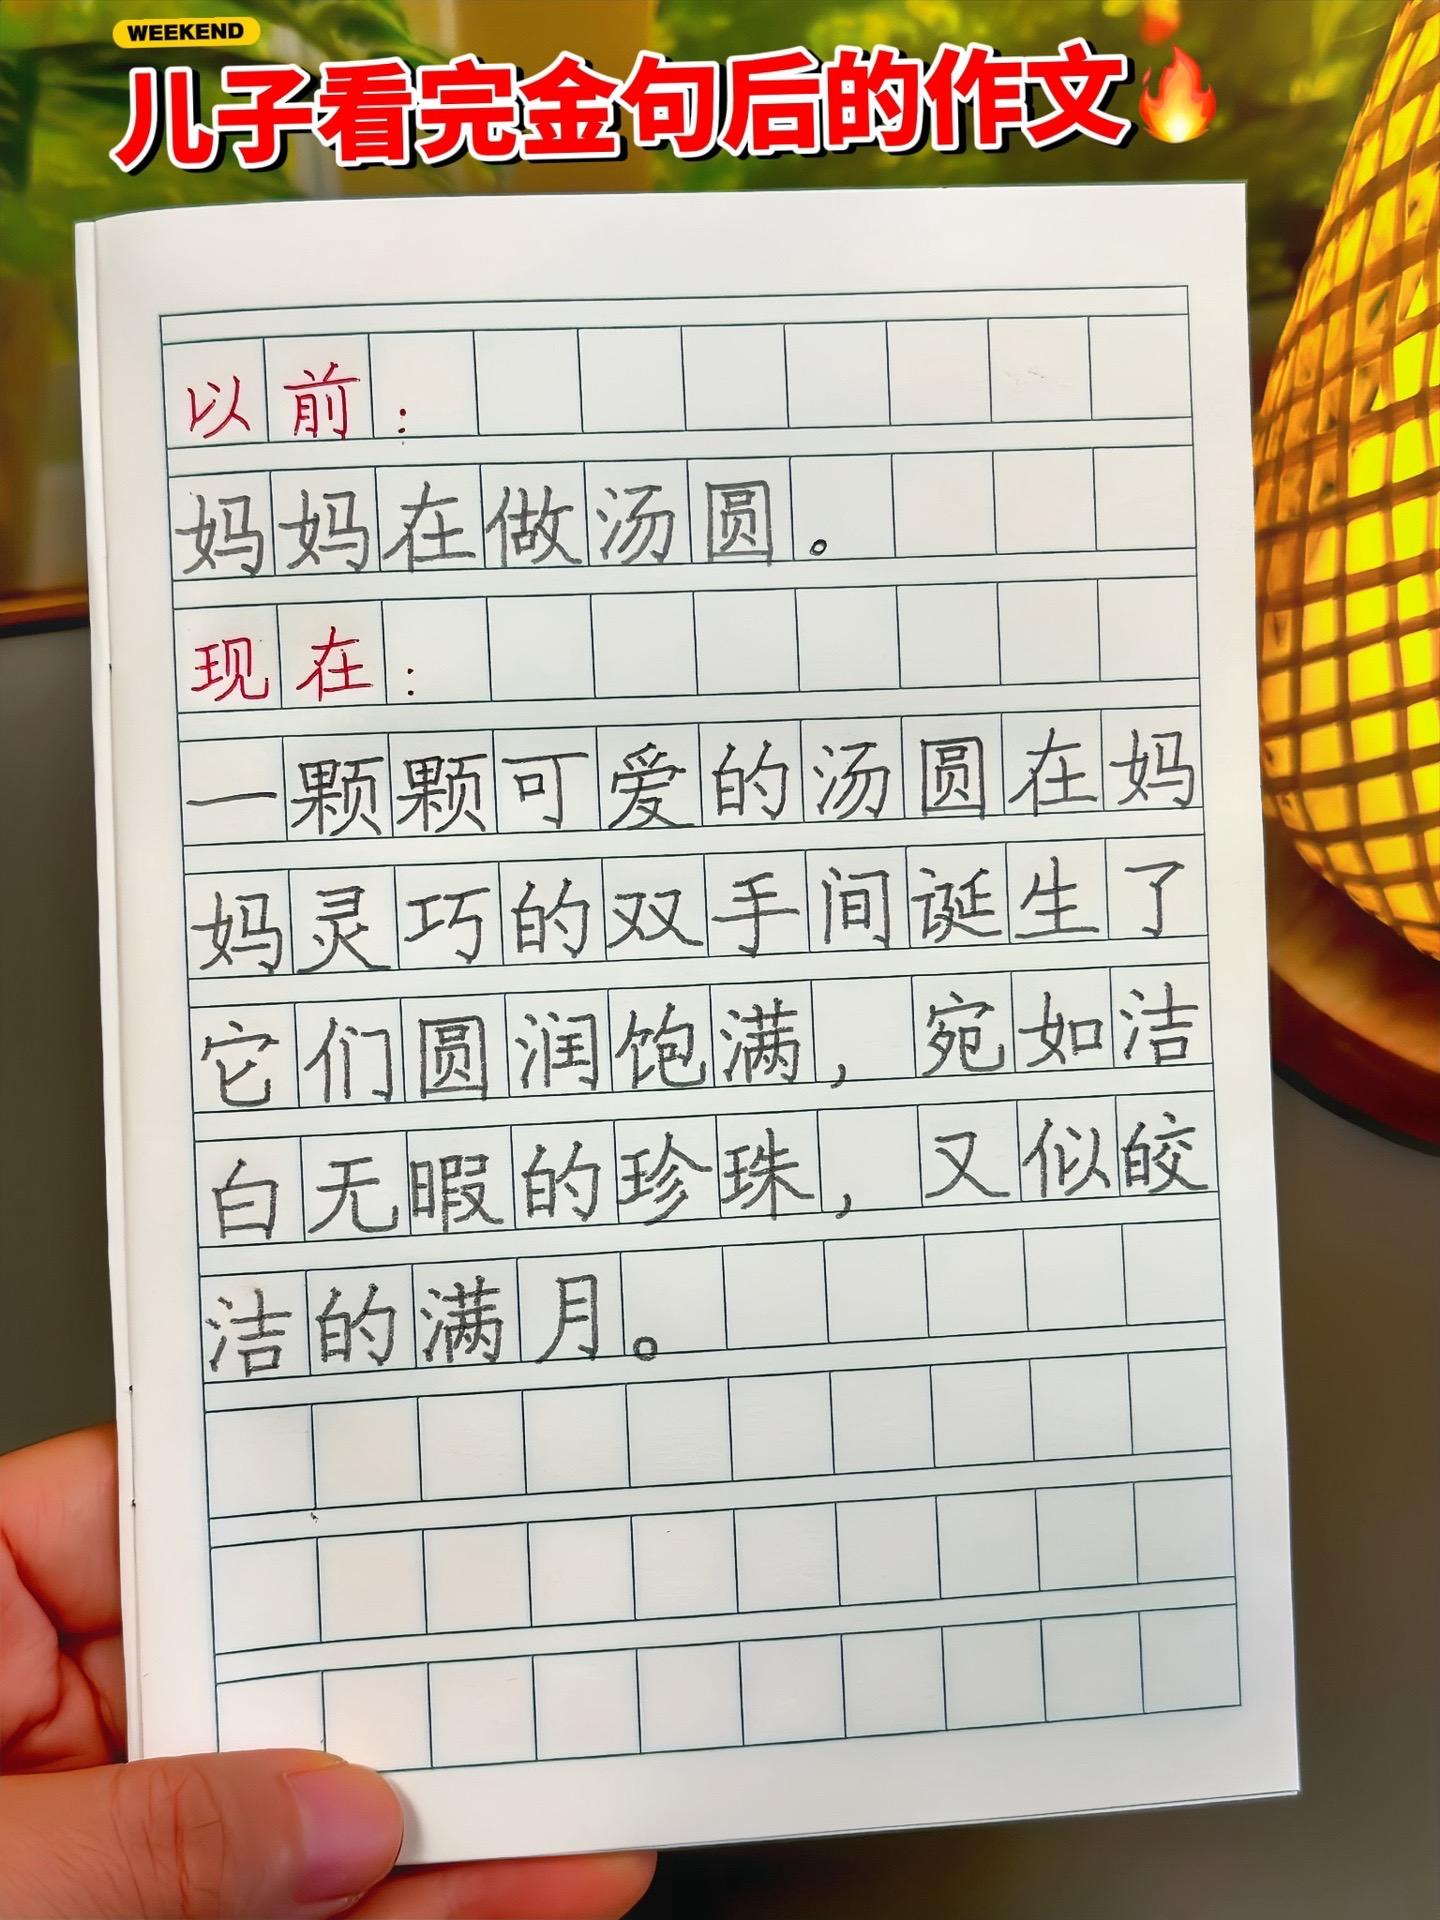 WEEKEND
儿子看完金句后的作文🔥
以前：
妈妈在做汤圆。
现在：
一颗颗可爱的汤圆在妈
妈灵巧的双手间诞生了
它们圆润饱满，宛如洁
白无暇的珍珠，又似皎
洁的满月。